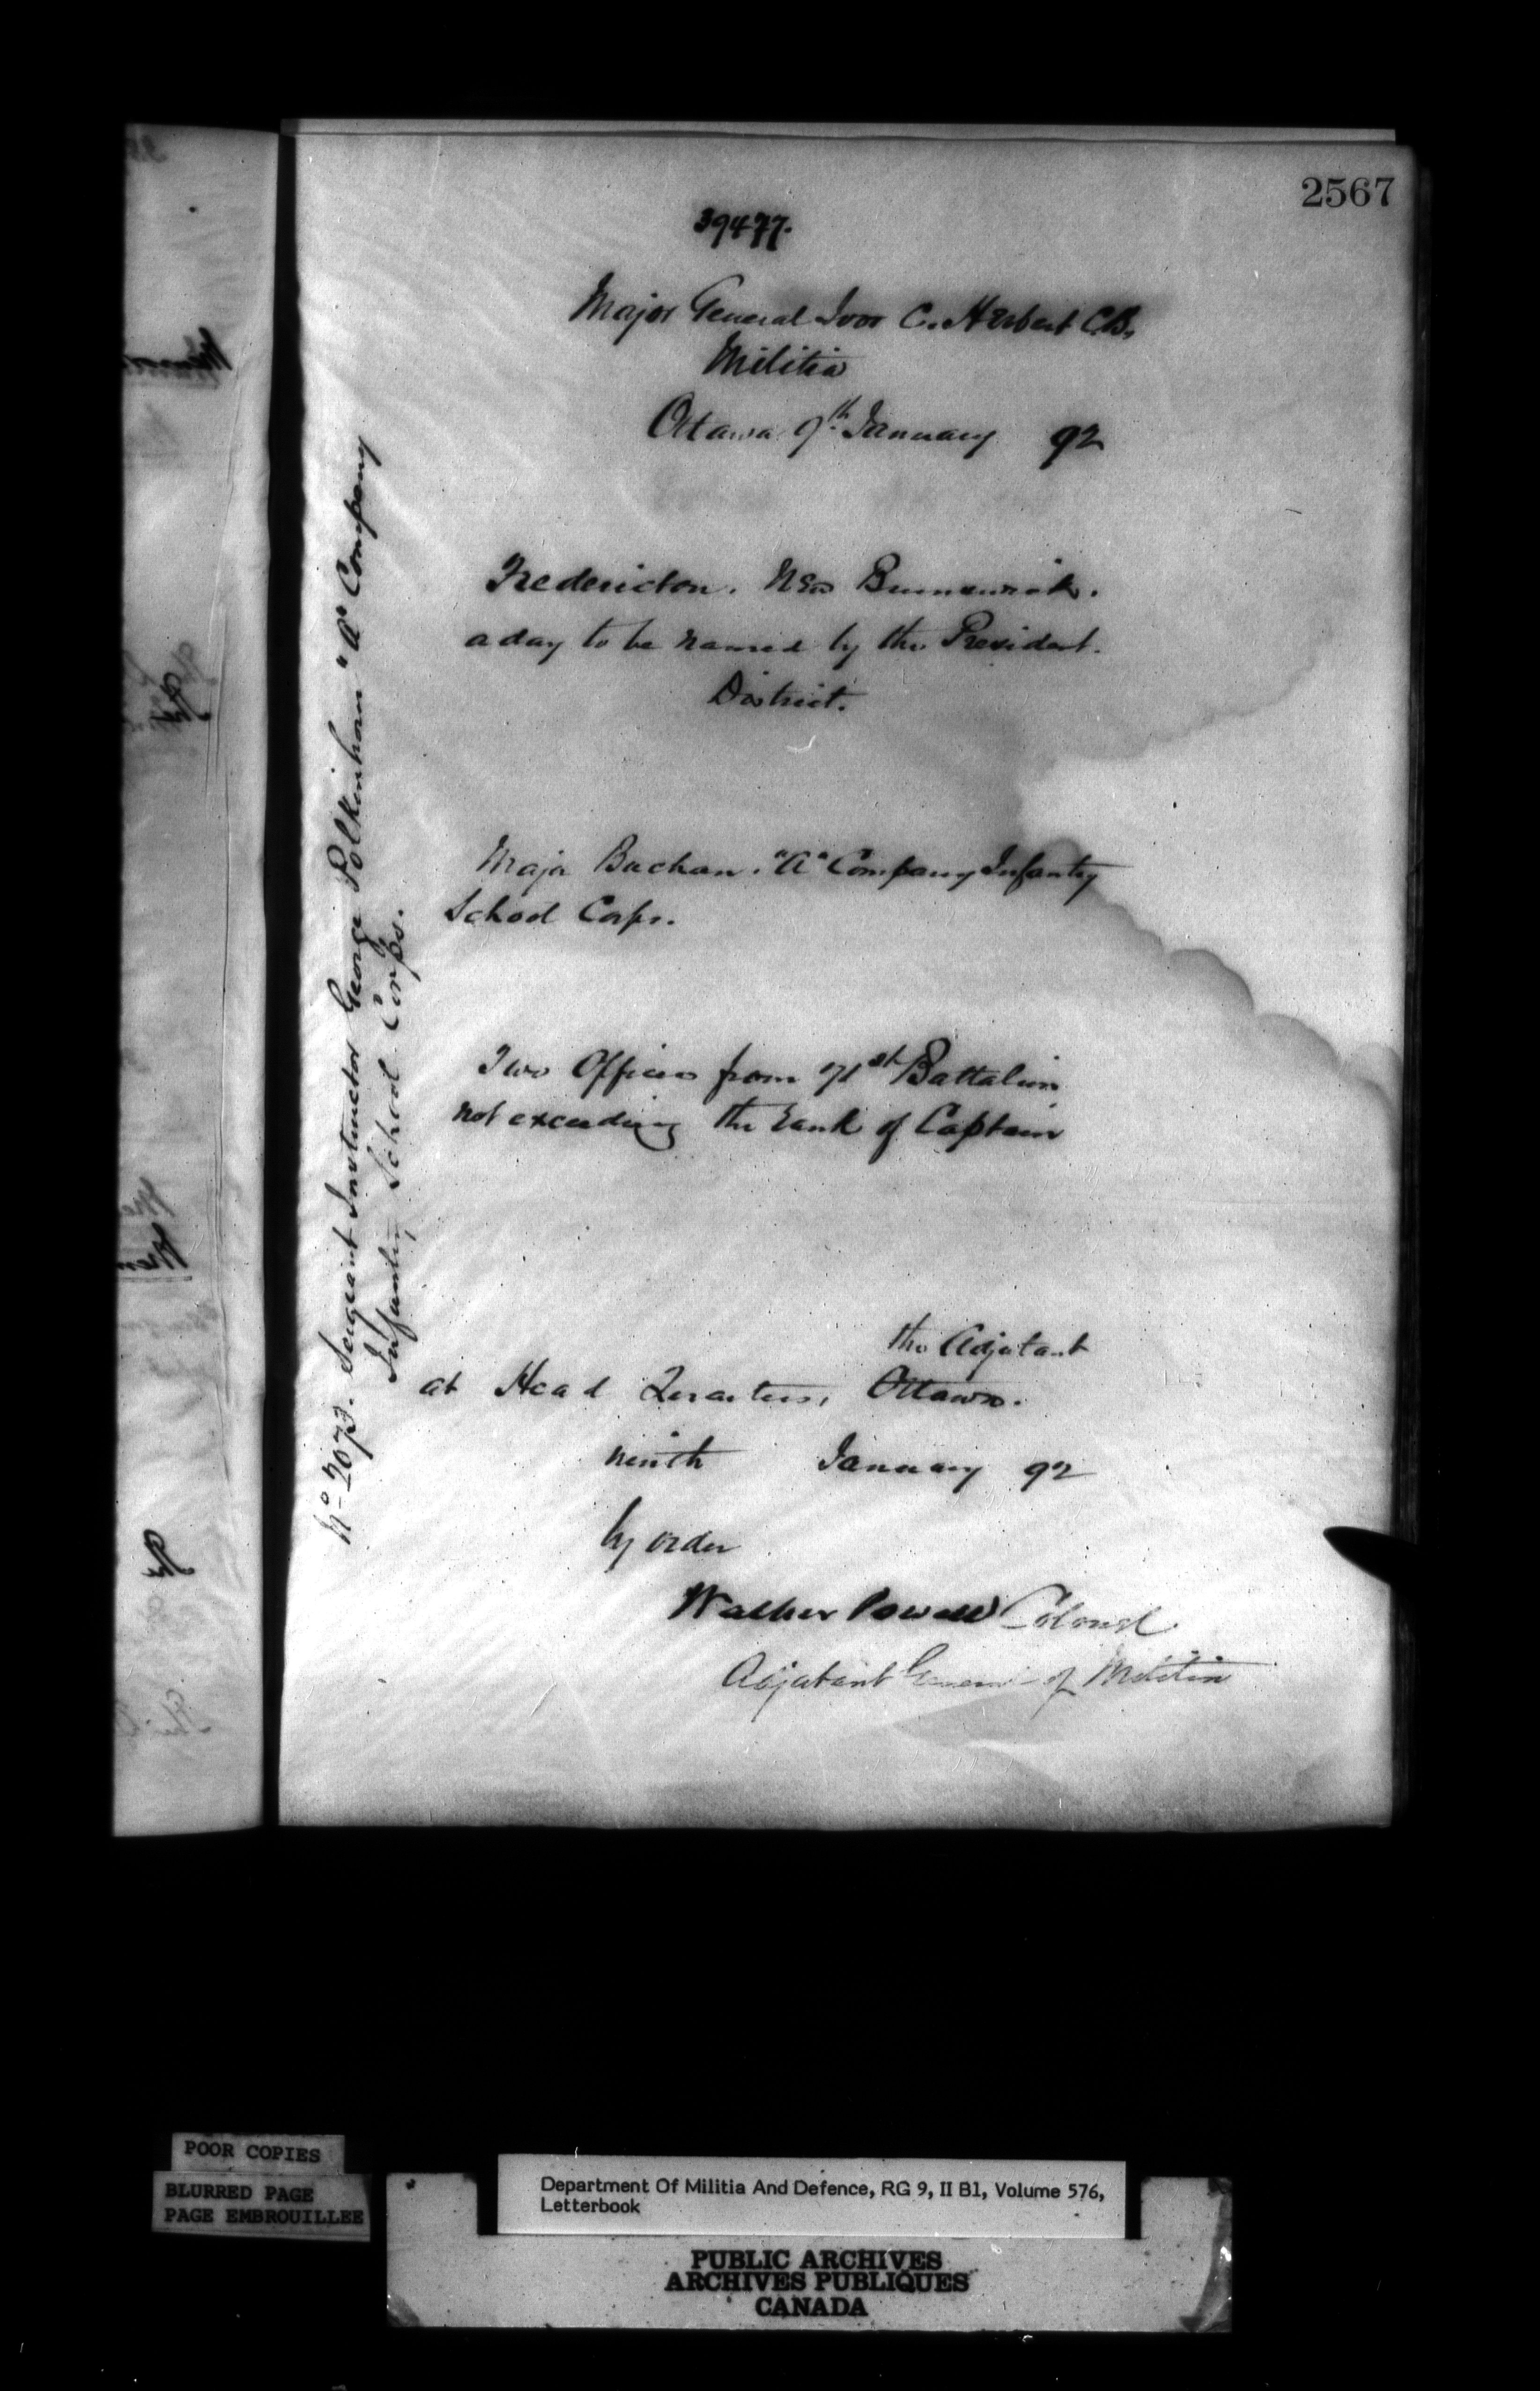 2567
39477.
Major General Ivor C. Herbert C.B.
Militia
Ottawa 9th January 92
Fredericton. New Brunswick.
a day to be named by the President.
District.
Major Buchan. "A" Company Infantry
School Corps.
Two Officers from 71st Battalion
not exceeding the rank of Captain
the Adjutant
at Head Quarters, Ottawa.
ninth January 92
by order
Walker Powell Colonel
Adjutant General of Militia
No 2073. Sergeant Instructor George Polkinhorn "A" Company
Infantry School Corps.
POOR COPIES
BLURRED PAGE
PAGE EMBROUILLEE
Department Of Militia And Defence, RG 9, II B1, Volume 576,
Letterbook
PUBLIC ARCHIVES
ARCHIVES PUBLIQUES
CANADA